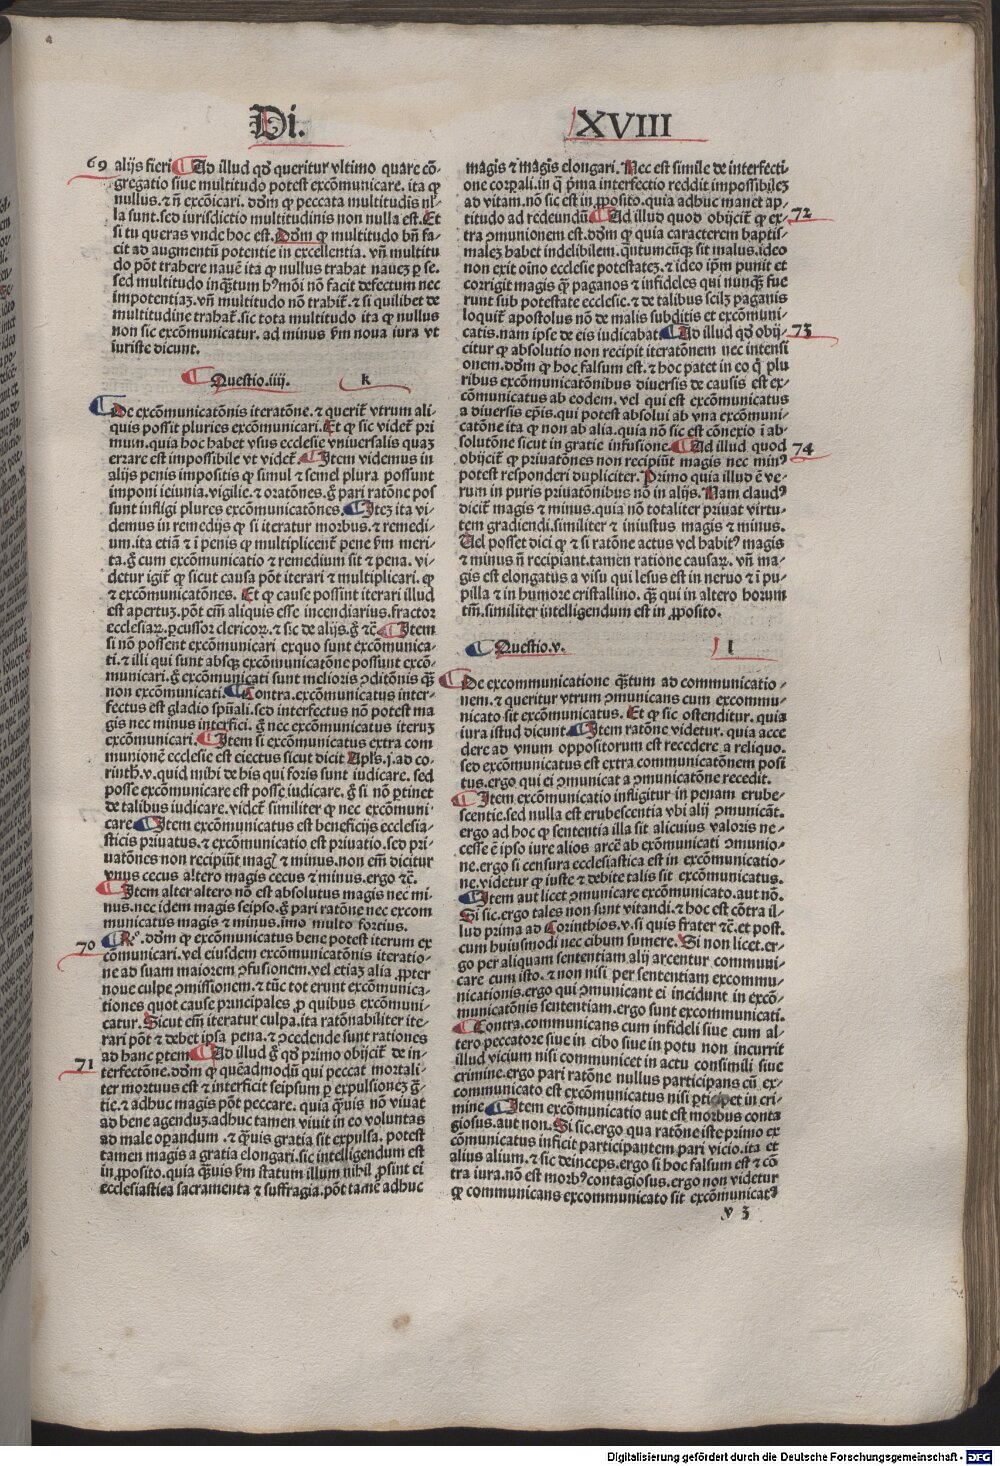 Di.
XVIII
69 alijs fieri ¶ Ad illud qd̕ queritur vltimo quare cō-
gregatio siue multitudo potest excōmunicare. ita ꝙ
nullus. ⁊ n̄ excōicari. dōm ꝙ peccata multitudīs nl̕-
la sunt. sed iurisdictio multitudinis non nulla est. Et
si tu queras vnde hoc est. Dōm ꝙ multitudo bn̄ fa-
cit ad augmentū potentie in excellentia. vn̄ multitu
do pōt trahere nauē ita ꝙ nullus trahat nauez ꝑ se.
sed multitudo inq̄tum hꝰmōi nō facit defectum nec
impotentiaz. vn̄ multitudo nō trahit᷑. ⁊ si quilibet de
multitudine trahat᷑. sic tota multitudo ita ꝙ nullus
non sic excōmunicatur. ad minus ẜm noua iura vt
iuriste dicunt.
¶ Questio.iiij. k
¶ De excōmunicatōnis iteratōne. ⁊ querit᷑ vtrum ali-
quis possit pluries excōmunicari. Et ꝙ sic videt᷑ pri
mum. quia hoc habet vsus ecclesie vniuersalis quaz
errare est impossibile vt videt᷑. ¶ Item videmus in
alijs penis impositis ꝙ simul ⁊ semel plura possunt
imponi ieiunia. vigilie. ⁊ oratōnes. g̊ pari ratōne pos
sunt infligi plures excōmunicatōnes. ¶ Itez ita vi-
demus in remedijs ꝙ si iteratur morbus. ⁊ remedi-
um. ita etiā ⁊ ī penis ꝙ multiplicent᷑ pene ẜm meri-
ta. g̊ cum excōmunicatio ⁊ remedium sit ⁊ pena. vi-
detur igit᷑ ꝙ sicut causa pōt iterari ⁊ multiplicari. ꝙ
⁊ excōmunicatōnes. Et ꝙ cause possint iterari illud
est apertuz. pōt em̄ aliquis esse incendiarius. fractor
ecclesiaꝝ. ꝑcussor clericoꝝ. ⁊ sic de alijs. g̊ ⁊c̄ ¶ Item
si nō possent excōmunicari exquo sunt excōmunica-
ti. ⁊ illi qui sunt absqꝫ excōmunicatōne possunt excō-
municari. g̊ excōmunicati sunt melioris ↄditōnis q̄ꝫ
non excōmunicati. ¶ Contra. excōmunicatus inter-
fectus est gladio spūali. sed interfectus nō potest ma
gis nec minus interfici. g̊ nec excōmunicatus iteruz
excōmunicari. ¶ Item si excōmunicatus extra com
munionē ecclesie est eiectus sicut dicit Apl̕s. j. ad co-
rinth̕. v. quid mihi de his qui foris sunt iudicare. sed
posse excōmunicare est posse iudicare. g̊ si nō ꝑtinet
de talibus iudicare. videt᷑ similiter ꝙ nec excōmuni
care ¶ Item excōmunicatus est beneficijs ecclesia-
sticis priuatus. ⁊ excōmunicatio est priuatio. sed pri-
uatōnes non recipiūt mag̕ ⁊ minus. non em̄ dicitur
vnus cecus altero magis cecus ⁊ minus. ergo ⁊c̄.
¶ Item alter altero nō est absolutus magis nec mi-
nus. nec idem magis seipso. g̊ pari ratōne nec excom
municatus magis ⁊ minus. īmo multo fortius.
70 ¶ Rº. dōm ꝙ excōmunicatus bene potest iterum ex
cōmunicari. vel eiusdem excōmunicatōnis iteratio-
ne ad suam maiorem ↄfusionem. vel etiaz alia ꝓpter
noue culpe ↄmissionem. ⁊ tūc tot erunt excōmunica-
tiones quot cause principales ꝓ quibus excōmuni-
catur. Sicut em̄ iteratur culpa. ita ratōnabiliter ite-
rari pōt ⁊ debet ipsa pena. ⁊ ↄcedende sunt rationes
71 ad hanc ꝑtem ¶ Ad illud g̊ qd̕ primo obijcit᷑ de in-
terfectōne. dōm ꝙ quēadmodū qui peccat mortali-
ter mortuus est ⁊ interficit seipsum ꝑ expulsionez g̊-
tie. ⁊ adhuc magis pōt peccare. quia q̄uis nō viuat
ad bene agenduz. adhuc tamen viuit in eo voluntas
ad male oꝑandum. ⁊ q̄uis gratia sit expulsa. potest
tamen magis a gratia elongari. sic intelligendum est
in ꝓposito. quia q̄uis ẜm statum illum nihil ꝓsint ei
ecclesiastica sacramenta ⁊ suffragia. pōt tamē adhuc
magis ⁊ magis elongari. Nec est simile de interfecti
one corꝑali. in q̄ pͥma interfectio reddit impossibilez
ad vitam. nō sic est in ꝓposito. quia adhuc manet ap-
titudo ad redeundū ¶ Ad illud quod obijcit᷑ ꝙ ex- 72
tra ↄmunionem est. dōm ꝙ quia caracterem baptis-
malez habet indelibilem. q̄ntumcūqꝫ sit malus. ideo
non exit oīno ecclesie potestatez. ⁊ ideo ip̄m punit et
corrigit magis ꝙ̄ paganos ⁊ infideles qui nunq̄ꝫ fue
runt sub potestate ecclesie. ⁊ de talibus scilꝫ paganis
loquit᷑ apostolus nō de malis subditis et excōmuni-
catis. nam ipse de eis iudicabat. ¶ Ad illud qd̕ obij- 73
citur ꝙ absolutio non recipit iteratōnem nec intensi
onem. dōm ꝙ hoc falsum est. ⁊ hoc patet in eo q̇ plu
ribus excōmunicatōnibus diuersis de causis est ex-
cōmunicatus ab eodem. vel qui est excōmunicatus
a diuersis ep̄is. qui potest absolui ab vna excōmuni-
catōne ita ꝙ non ab alia. quia nō sic est cōnexio ī ab-
solutōne sicut in gratie infusione. ¶ Ad illud quod 74
obijcit᷑ ꝙ priuatōnes non recipiūt magis nec minꝰ
potest responderi dupliciter. Primo quia illud ē ve-
rum in puris priuatōnibus nō in alijs. Nam claudꝰ
dicit᷑ magis ⁊ minus. quia nō totaliter priuat virtu-
tem gradiendi. similiter ⁊ iniustus magis ⁊ minus.
Uel posset dici ꝙ ⁊ si ratōne actus vel habitꝰ magis
⁊ minus n̄ recipiant. tamen ratione causaꝝ. vn̄ ma-
gis est elongatus a visu qui lesus est in neruo ⁊ ī pu-
pilla ⁊ in humore cristallino. q̄ꝫ qui in altero horum
tm̄. similiter intelligendum est in ꝓposito.
¶ Questio.v. l
¶ De excommunicatione q̄ꝫtum ad communicatio-
nem. ⁊ queritur vtrum ↄmunicans cum excommu-
nicato sit excōmunicatus. Et ꝙ sic ostenditur. quia
iura istud dicunt ¶ Item ratōne videtur. quia acce
dere ad vnum oppositorum est recedere a reliquo.
sed excōmunicatus est extra communicatōnem posi
tus. ergo qui ei ↄmunicat a ↄmunicatōne recedit.
¶ Item excōmunicatio infligitur in penam erube-
scentie. sed nulla est erubescentia vbi alij ↄmunicāt.
ergo ad hoc ꝙ sententia illa sit alicuius valoris ne-
cesse ē ipso iure alios arcē ab exōmunicati ↄmunio-
ne. ergo si censura ecclesiastica est in excōmunicatio-
ne. videtur ꝙ iuste ⁊ debite talis sit excōmunicatus.
¶ Item aut licet ↄmunicare excōmunicato. aut nō.
Si sic. ergo tales non sunt vitandi. ⁊ hoc est cōtra il-
lud prima ad Corinthios. v. si quis frater ⁊c̄. et post.
cum huiusmodi nec cibum sumere. Si non licet. er-
go per aliquam sententiam alij arcentur communi-
care cum isto. ⁊ non nisi per sententiam excommu-
nicationis. ergo qui ↄmunicant ei incidunt in excō-
municatōnis sententiam. ergo sunt excommunicati.
¶ Contra. communicans cum infideli siue cum al-
tero peccatore siue in cibo siue in potu non incurrit
illud vicium nisi communicet in actu consimili siue
crimine. ergo pari ratōne nullus participans cū ex-
communicato est excōmunicatus nisi ꝑticipet in cri-
mine ¶ Item excōmunicatio aut est morbus conta
giosus. aut non. Si sic. ergo qua ratōne iste primo ex
cōmunicatus inficit participantem pari vicio. ita et
alius alium. ⁊ sic deinceps. ergo si hoc falsum est ⁊ cō
tra iura. nō est morbꝰ contagiosus. ergo non videtur
ꝙ communicans excommunicato sit excōmunicatꝰ
v 3
Digitalisierung gefördert durch die Deutsche Forschungsgemeinschaft - DFG